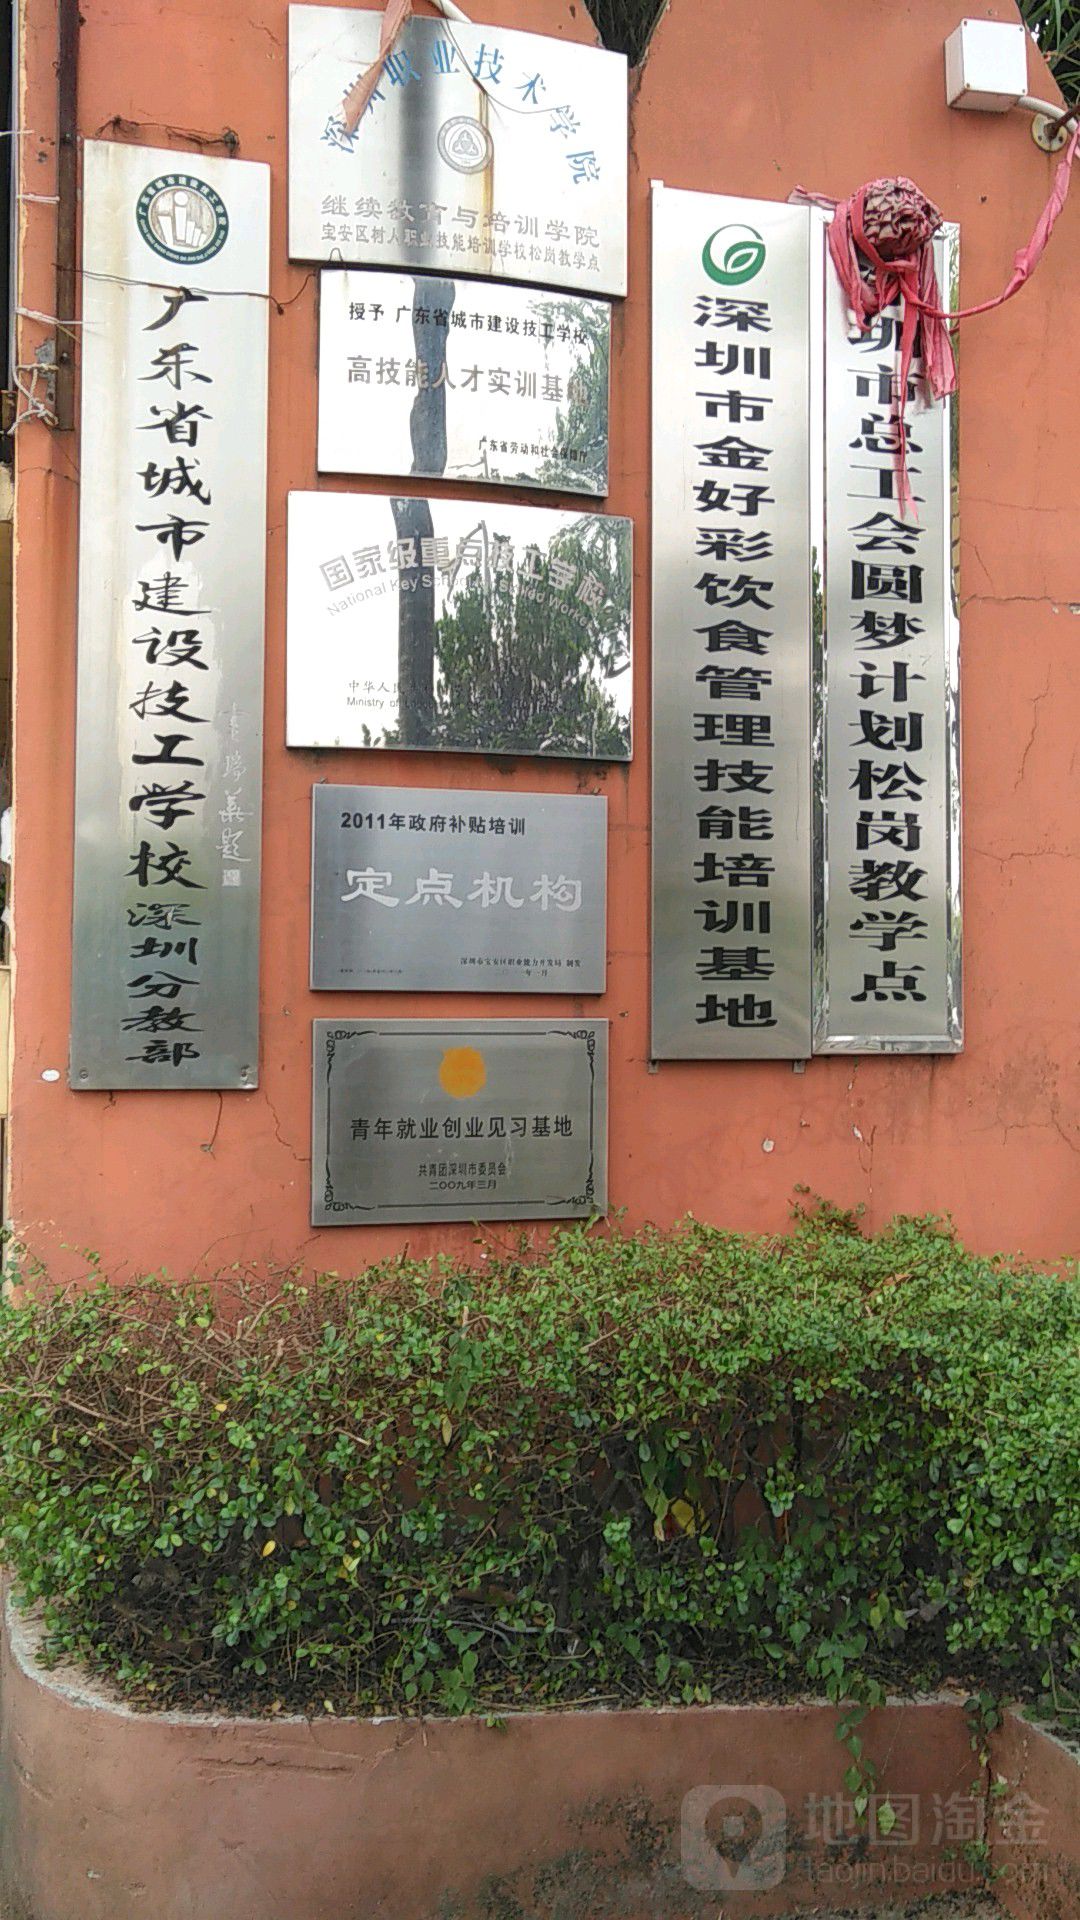 广东省城市建设技工学校深圳分教部
深圳职业技术学院
继续教育与培训学院
宝安区村人职业技能培训学校松岗教学点
授予 广东省城市建设技工学校
高技能人才实训基地
广东省劳动和社会保障厅
国家级重点技工学校
National Key School
中华人民
Ministry of
2011年政府补贴培训
定点机构
深圳市宝安区职业能力开发局 制发
二〇一一年一月
青年就业创业见习基地
共青团深圳市委员会
二〇〇九年三月
深圳市金好彩饮食管理技能培训基地
圳市总工会圆梦计划松岗教学点
地图淘金
taojin.baidu.com